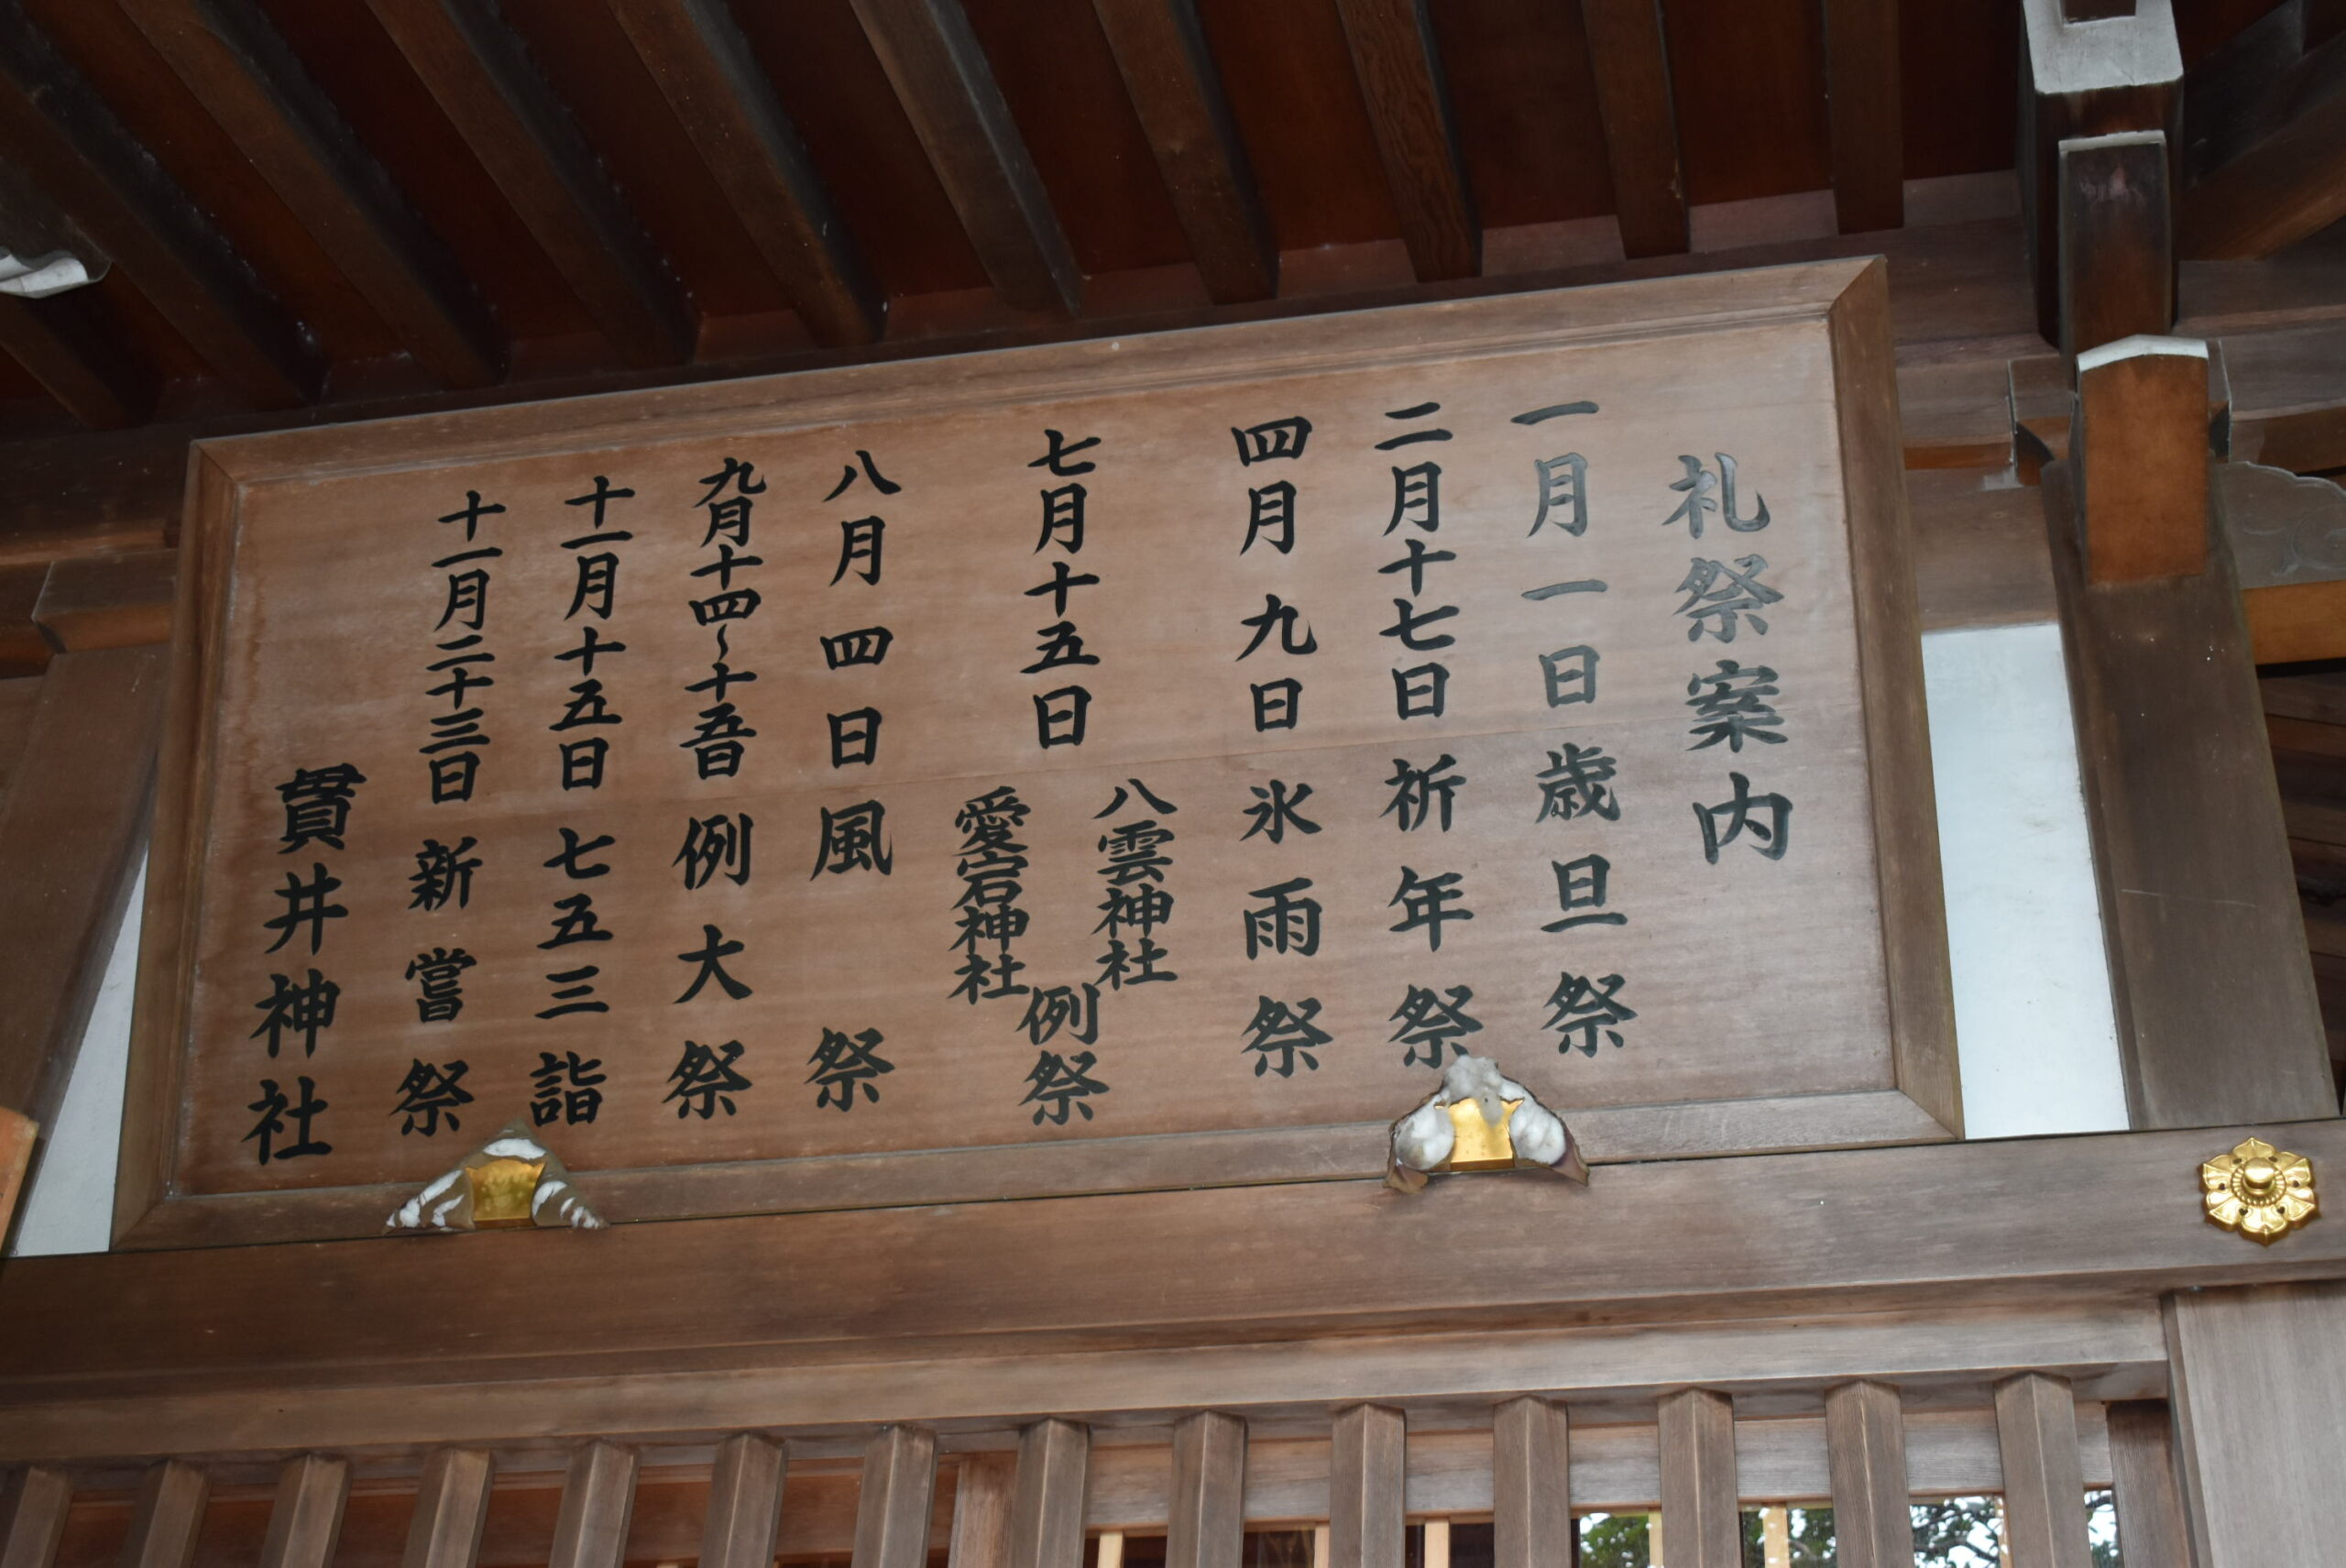 礼祭案内
一月一日歳旦祭
二月十七日祈年祭
四月九日氷雨祭
七月十五日
八雲神社
愛宕神社
例祭
八月四日風祭
九月十四~十五日例大祭
十一月十五日七五三詣
十一月二十三日新嘗祭
貫井神社